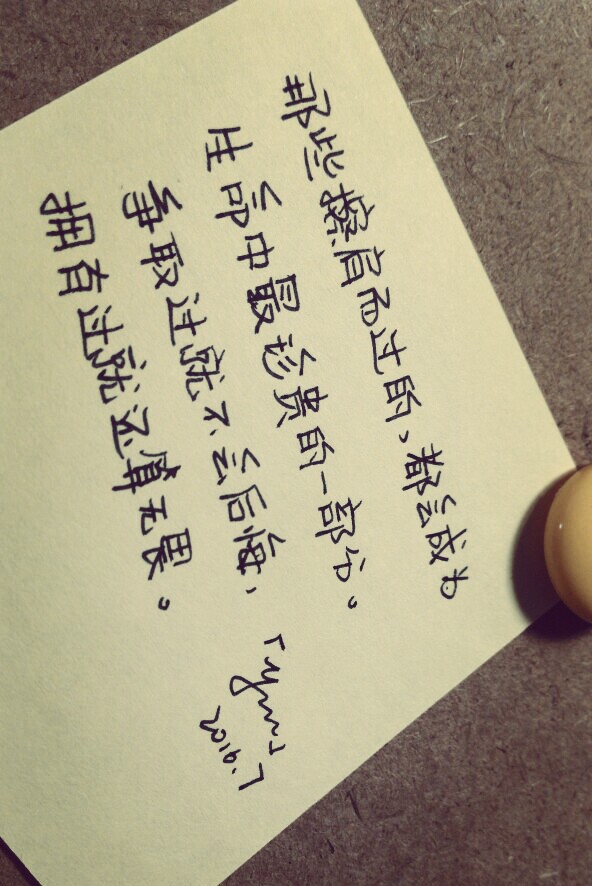 那些擦肩而过的，都会成为
生命中最珍贵的一部分。
争取过就不会后悔，
拥有过就还算无畏。